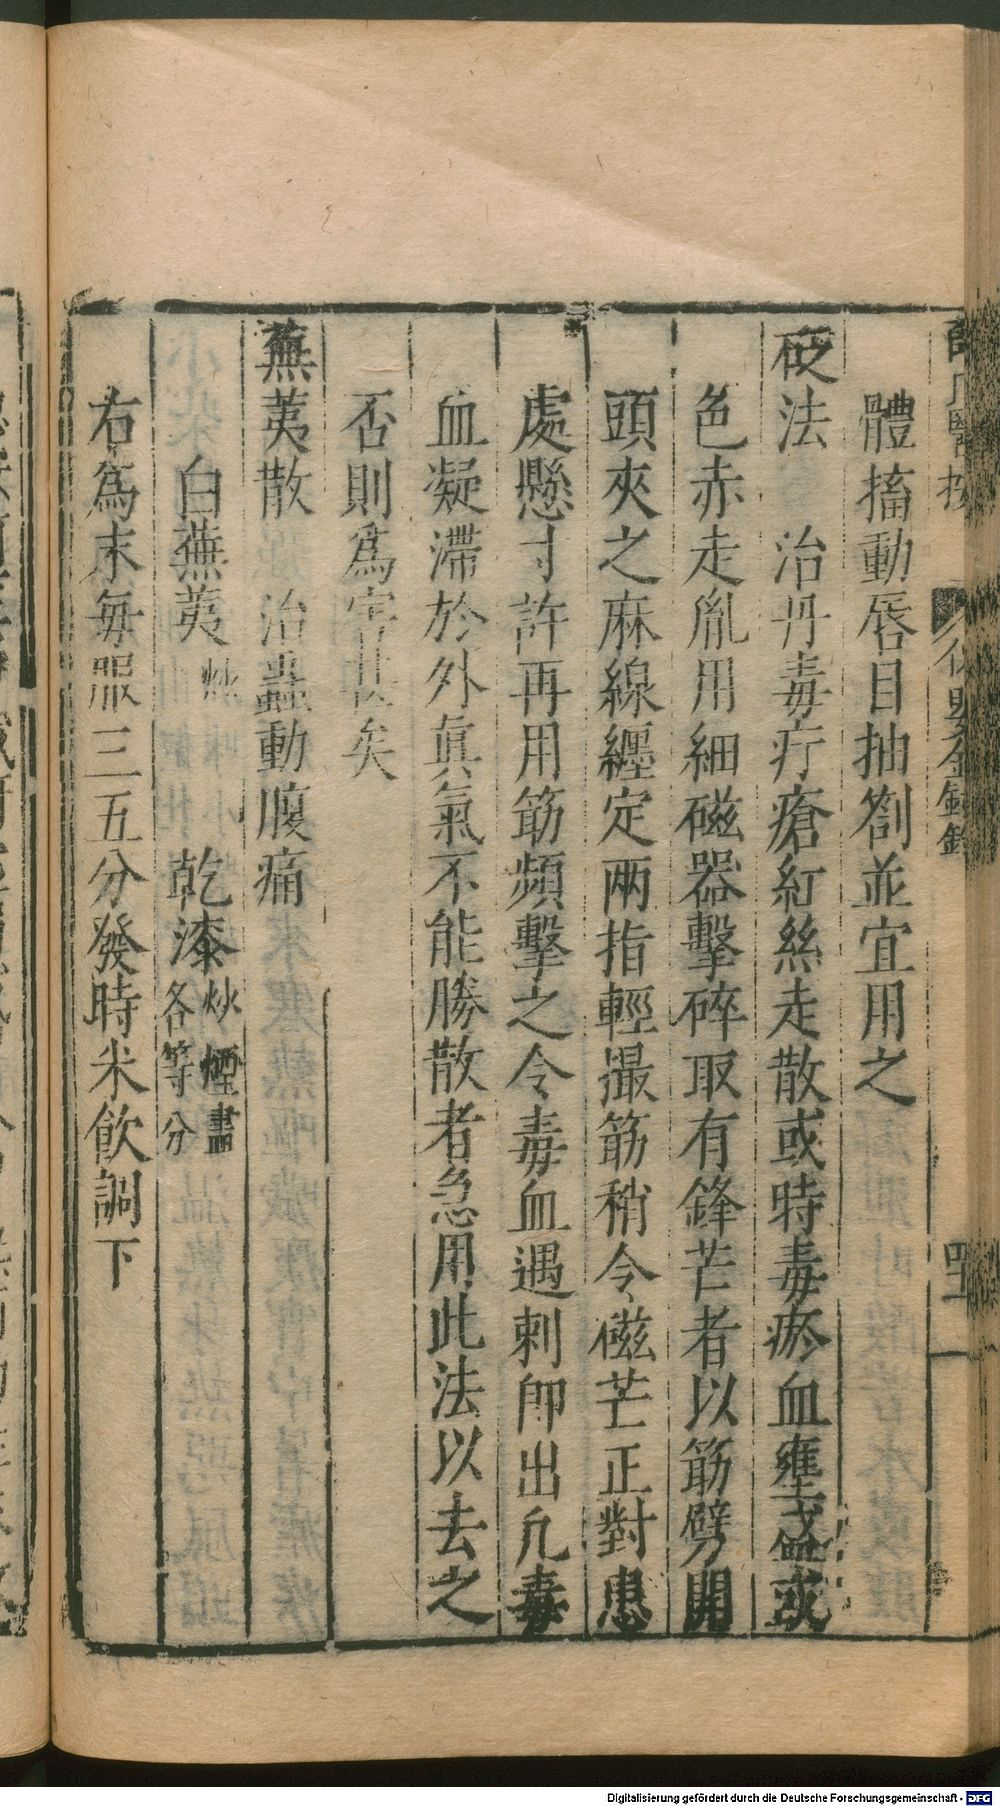 薛氏醫按
保嬰金鏡錄
四
體搐動唇目抽劄並宜用之
砭法 治丹毒疔瘡紅絲走散或時毒瘀血壅盛或
色赤走胤用細磁器擊碎取有鋒芒者以筯劈開
頭夾之麻線纏定兩指輕撮筯稍令磁芒正對患
處懸寸許再用筯頻擊之令毒血遇刺卽出凢毒
血凝滯於外眞氣不能勝散者急用此法以去之
否則爲害甚矣
蕪荑散 治蟲動腹痛
白蕪荑炒 乾漆炒煙盡各等分
右爲末每服三五分發時米飲調下
Digitalisierung gefördert durch die Deutsche Forschungsgemeinschaft - DFG